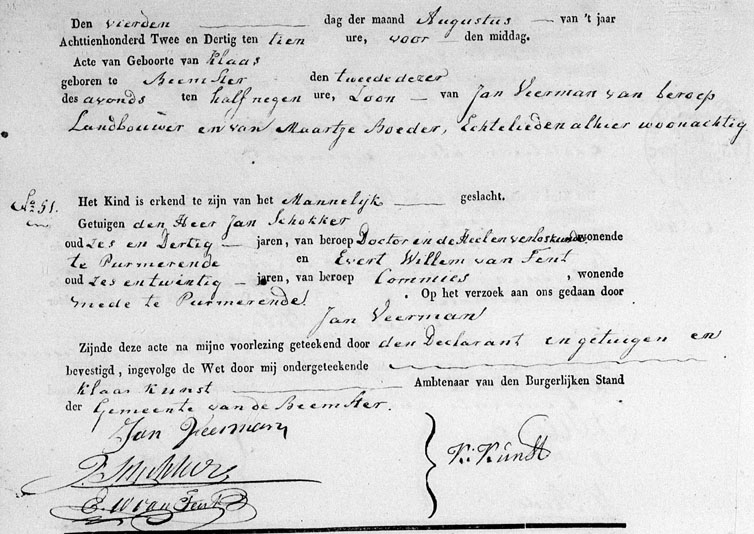 Den vierden dag der maand Augustus van 't jaar
Achttienhonderd Twee en Dertig ten tien ure, voor den middag.
Acte van Geboorte van Klaas
geboren te Beemster den tweede dezer
des avonds ten half negen ure, Zoon van Jan Veerman van beroep
Landbouwer en van Maartje Boeder, Echtelieden alhier woonachtig
No 51. Het Kind is erkend te zijn van het Mannelijk geslacht.
Getuigen den Heer Jan Schokker
oud zes en Dertig jaren, van beroep Doctor en de Heelen verloskunde, wonende
te Purmerende en Evert Willem van Fent
oud zes en twintig jaren, van beroep Commies, wonende
mede te Purmerende. Op het verzoek aan ons gedaan door
Jan Veerman
Zijnde deze acte na mijne voorlezing geteekend door den Declarant en getuigen en
bevestigd, ingevolge de Wet door mij ondergeteekende
Klaas Kunst Ambtenaar van den Burgerlijken Stand
der Gemeente van de Beemster.
Jan Veerman
K: Kunst
E. W van Fent